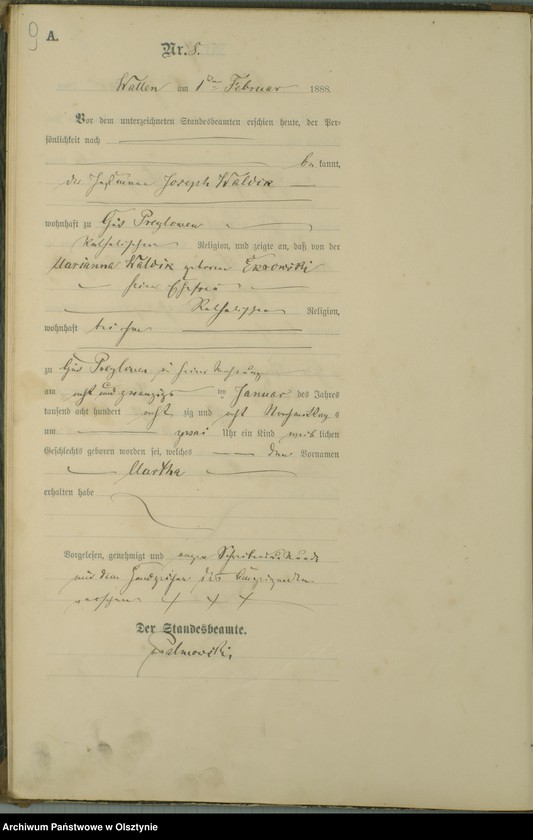 9
A.
Nr. 8.
Wallen am 1ten Februar 1888.
Vor dem unterzeichneten Standesbeamten erschien heute, der Per-
sönlichkeit nach
be kannt,
der Joseph Waldik
wohnhaft zu Gut Preylowen
katholischer Religion, und zeigte an, daß von der
Marianna Waldik geborene
seiner Ehefrau
katholischer Religion,
wohnhaft bei ihm
zu Gut Preylowen in seiner Wohnung
am acht und zwanzigsten Januar des Jahres
tausend acht hundert acht zig und acht Nachmittag s
um zwei Uhr ein Kind weib lichen
Geschlechts geboren worden sei, welches den Vornamen
Martha
erhalten habe
Vorgelesen, genehmigt und wegen Schreibensunkunde
mit dem Handzeichen des Anzeigenden
versehen + + +
Der Standesbeamte.
Palmowski.
Archiwum Państwowe w Olsztynie